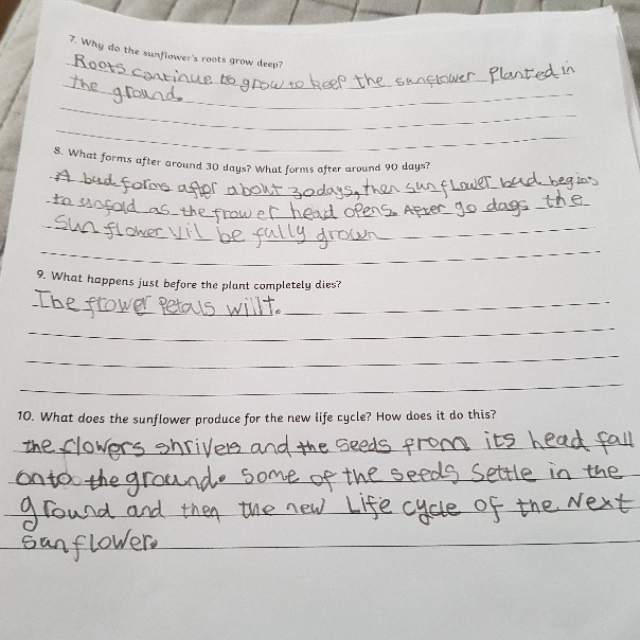 7. Why do the sunflower's roots grow deep?
Roots continue to grow to keep the sunflower Planted in
the ground.
8. What forms after around 30 days? What forms after around 90 days?
A bud forms after about 30days, then sunflower bud begins
to unfold as the frower head opens. After 90 days the
sunflower vil be fully grown
9. What happens just before the plant completely dies?
The frower Petals willt.
10. What does the sunflower produce for the new life cycle? How does it do this?
the flowers shrivels and the seeds from its head fall
onto the ground. some of the seeds settle in the
ground and then the new Life cycle of the Next
sunflower.